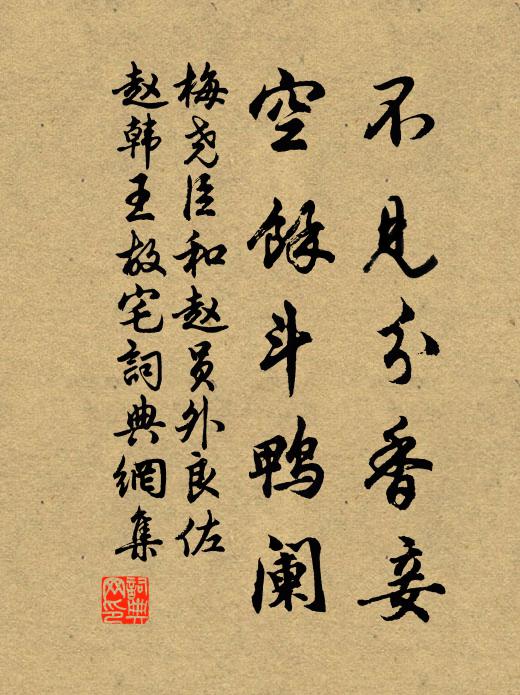 不见分香妾
空馀斗鸭阑
梅尧臣和赵员外良佐
赵韩王故宅词典网集
词典网印